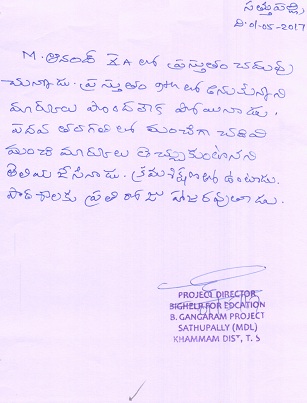 సత్తుపల్లి
ది. 01-05-2017
M. ఆనంద్ XA లో ప్రస్తుతం చదువు
చున్నాడు. ప్రస్తుతం 9th లో అనుకున్నన్ని
మార్కులు పొందలేక పోయినాడు.
పదవ తరగతి లో మంచిగా చదివి
మంచి మార్కులు తెచ్చుకుంటానని
తెలియజేసినాడు. క్రమశిక్షణలో ఉంటాడు.
పాఠశాలకు ప్రతి రోజు హాజరవుతాడు.
PROJECT DIRECTOR
BIGHELP FOR EDCATION
B. GANGARAM PROJECT
SATHUPALLY (MDL)
KHAMMAM DIST, T. S